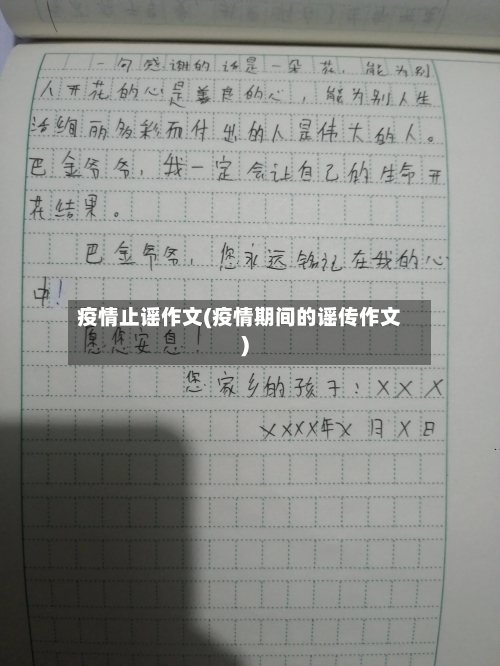 一句感谢的话是一朵花，能为别
人开花的心是善良的心，能为别人生
活绚丽多彩而付出的人是伟大的人。
巴金爷爷，我一定会让自己的生命开
花结果。
巴金爷爷，您永远铭记在我的心
中！
疫情止谣作文(疫情期间的谣传作文
)
愿您安息！
您家乡的孩子：XXX
XXXX年X月X日